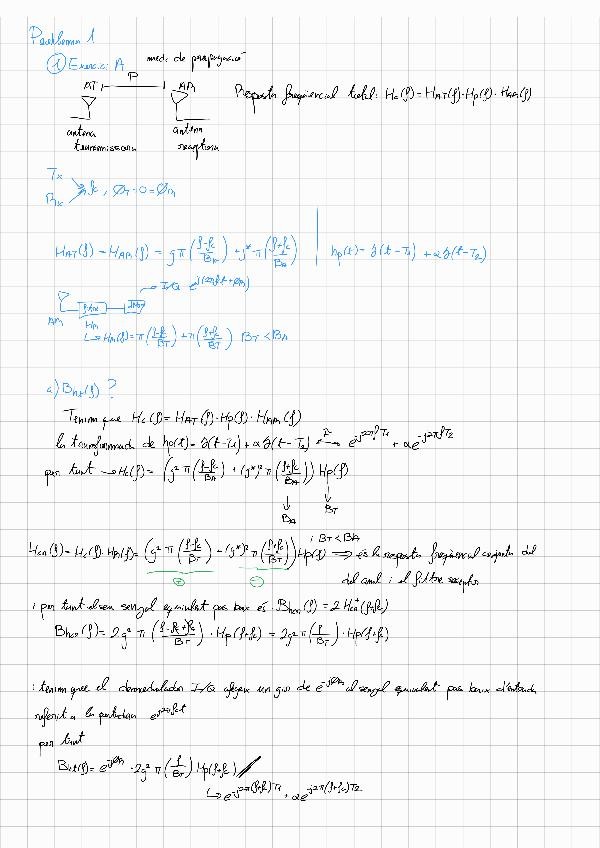 Problema 1
① Exercici A
medi de propagació
AT P AR
Resposta freqüencial total: Hc(f) = HAT(f)·Hp(f)·HAR(f)
antena transmissora
antena receptora
Tx
Rx
fc, ØT = 0 = ØR
HAT(f) = HAR(f) = g π((f-fc)/BA) + g* π((f+fc)/BA)
hp(t) = δ(t-T1) + αδ(t-T2)
I/Q
AR
HR
↳ HR(f) = π((f-fc)/BT) + π((f+fc)/BT) BT < BA
a) Bhit(f)?
Tenim que Hc(f) = HAT(f)·Hp(f)·HAR(f)
la transformada de hp(t) = δ(t-T1) + αδ(t-T2) ⟷ e^-j2πfT1 + αe^-j2πfT2
per tant → Hc(f) = (g² π((f-fc)/BA) + (g*)² π((f+fc)/BA)) Hp(f)
BA BT
i BT < BA
Hcr(f) = Hc(f)·HR(f) = (g² π((f-fc)/BT) + (g*)² π((f+fc)/BT)) Hp(f) ⟹ és la resposta freqüencial conjunta del
+ -
del canal i el filtre receptor
i per tant el seu senyal equivalent pas baix és Bhcr(f) = 2Hcr⁺(f+fc)
Bhcr(f) = 2g² π((f-fc+fc)/BT) · Hp(f+fc) = 2g² π(f/BT) · Hp(f+fc)
i tenim que el demodulador I/Q afegeix un gir de e^-jØR al senyal equivalent pas baix d'entrada
referit a la e^j2πfct
per tant
Bhit(f) = e^-jØR · 2g² π(f/BT) Hp(f+fc)
↳ e^-j2π(f+fc)T1 + αe^-j2π(f+fc)T2